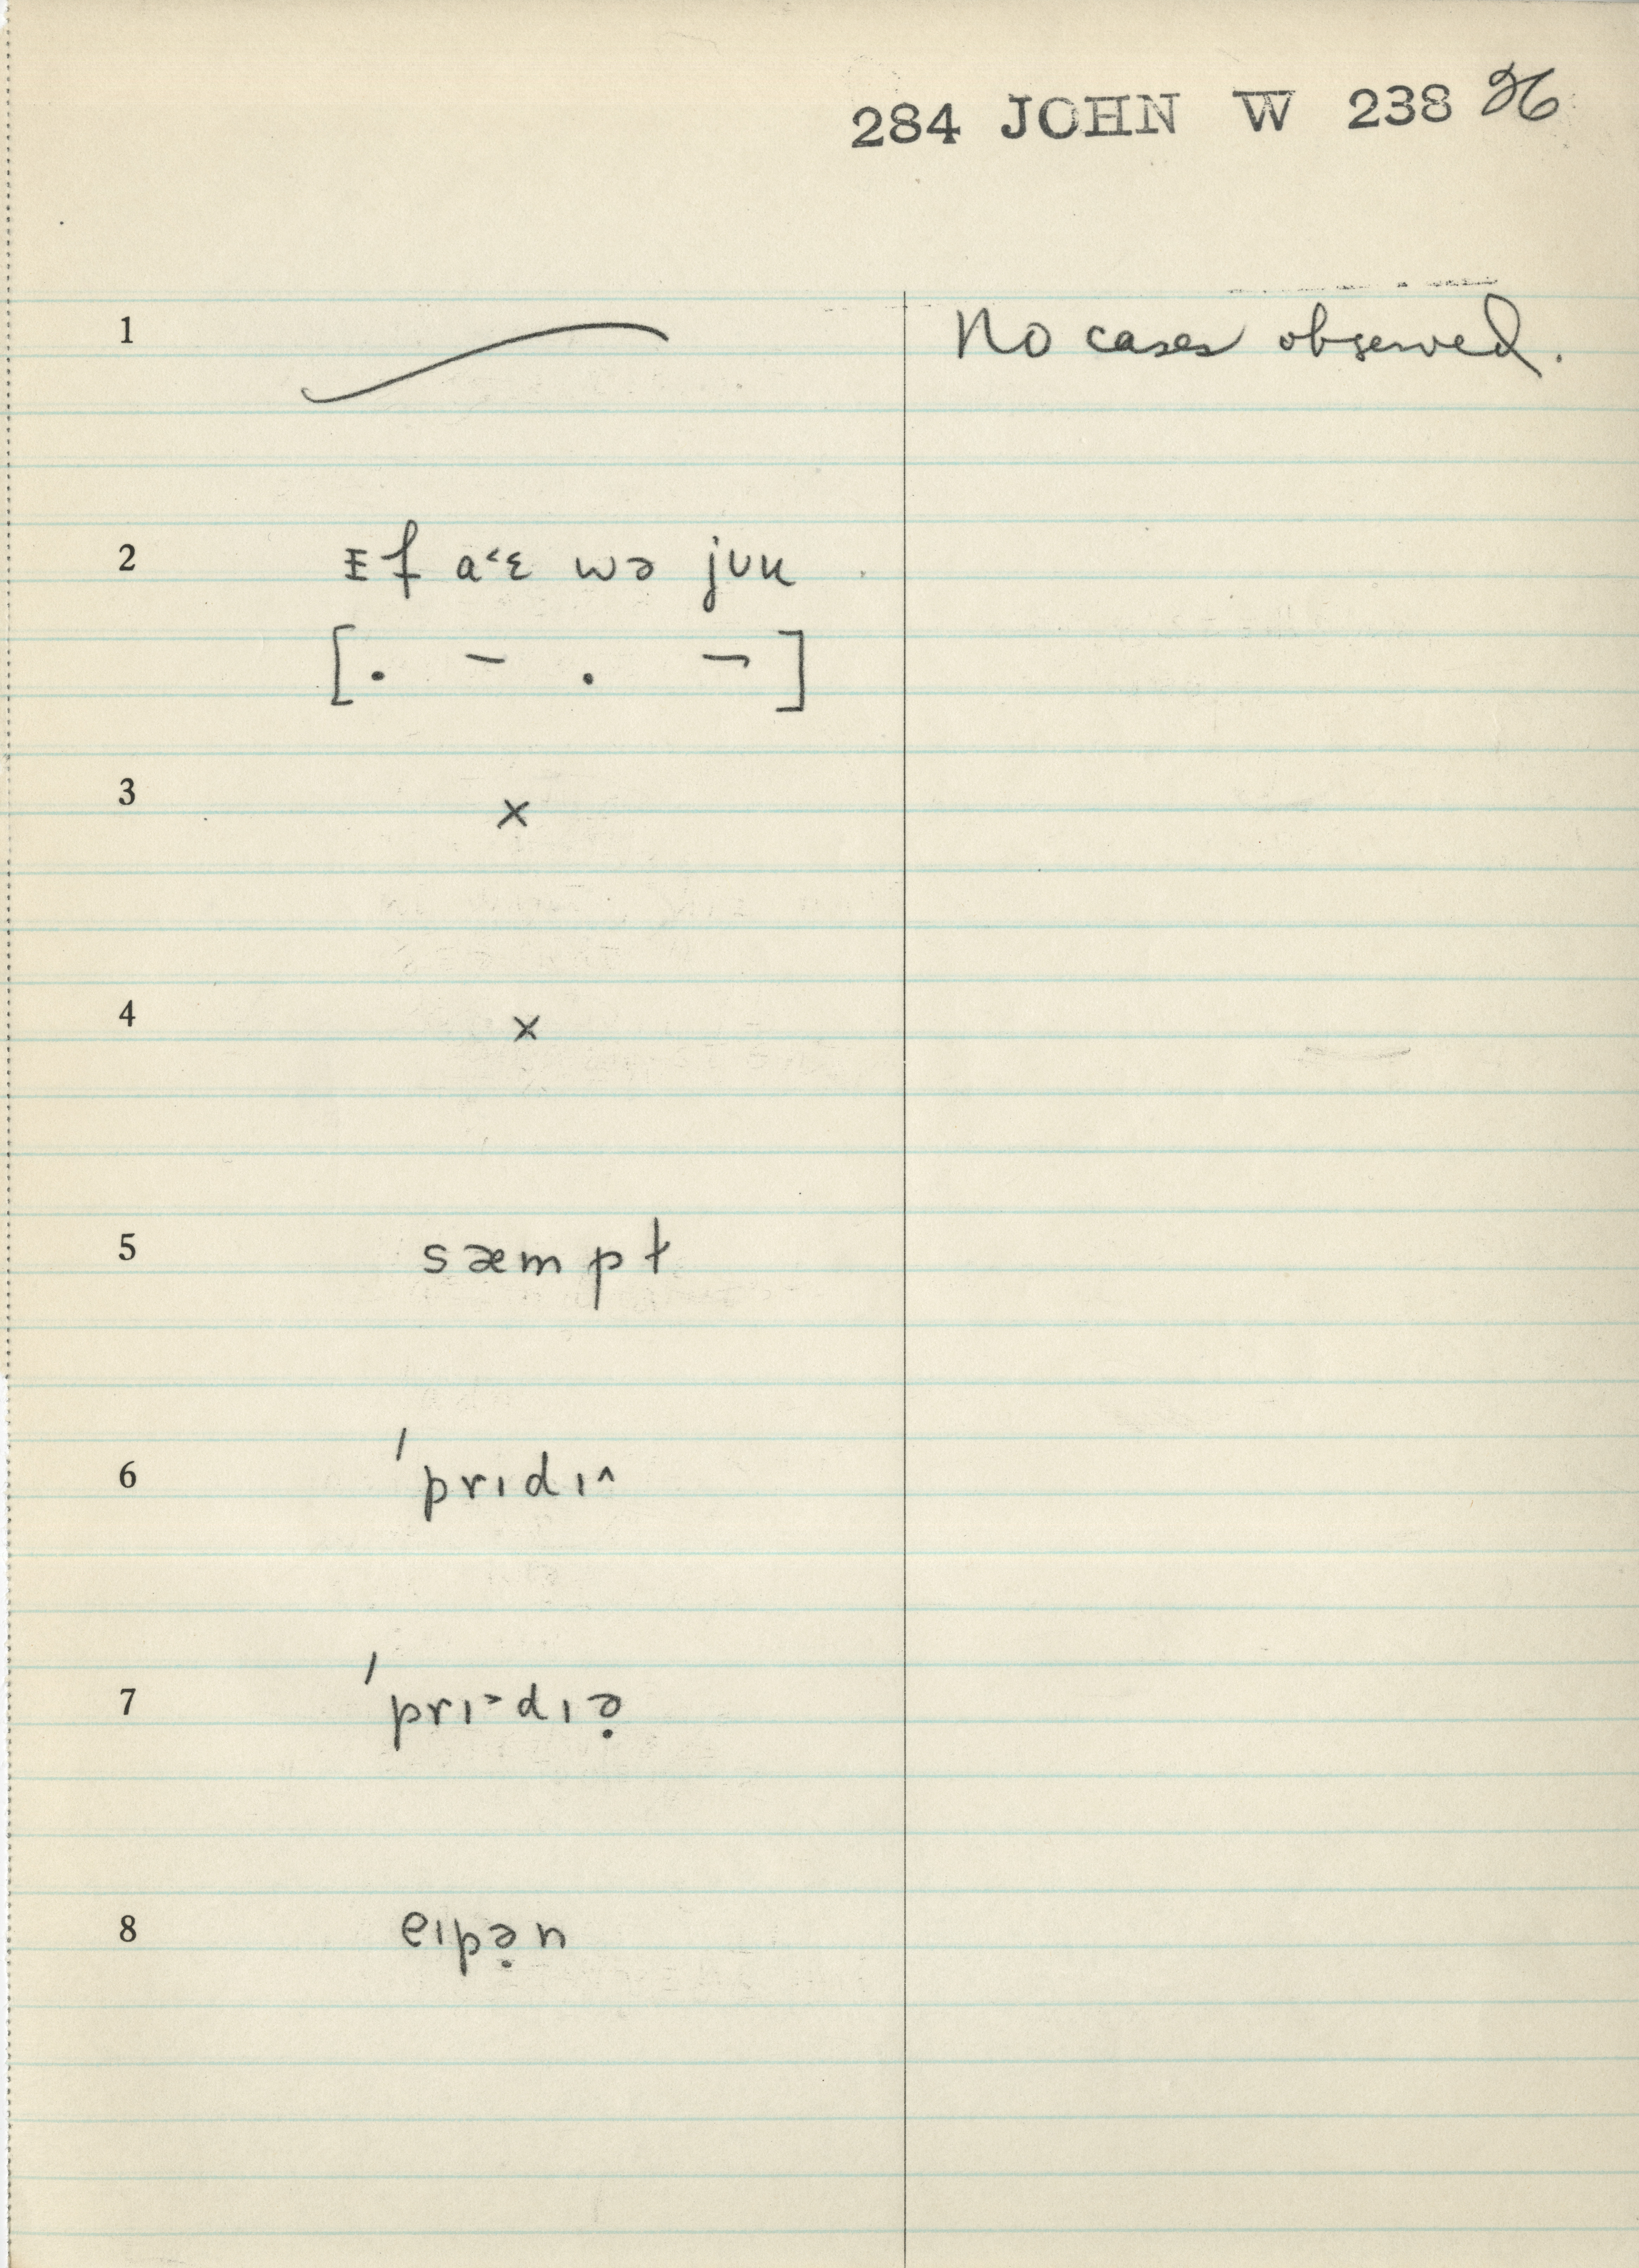 284 JOHN W 238 26
1 No cases observed.
2 ɪf a˂ɛ wə jʊu
[. – . ¬]
3 ×
4 ×
5 sæmpt
6 ˈprɪdɪ^
7 ˈprɪ˃dɪə̣
8 eɪpə̣n